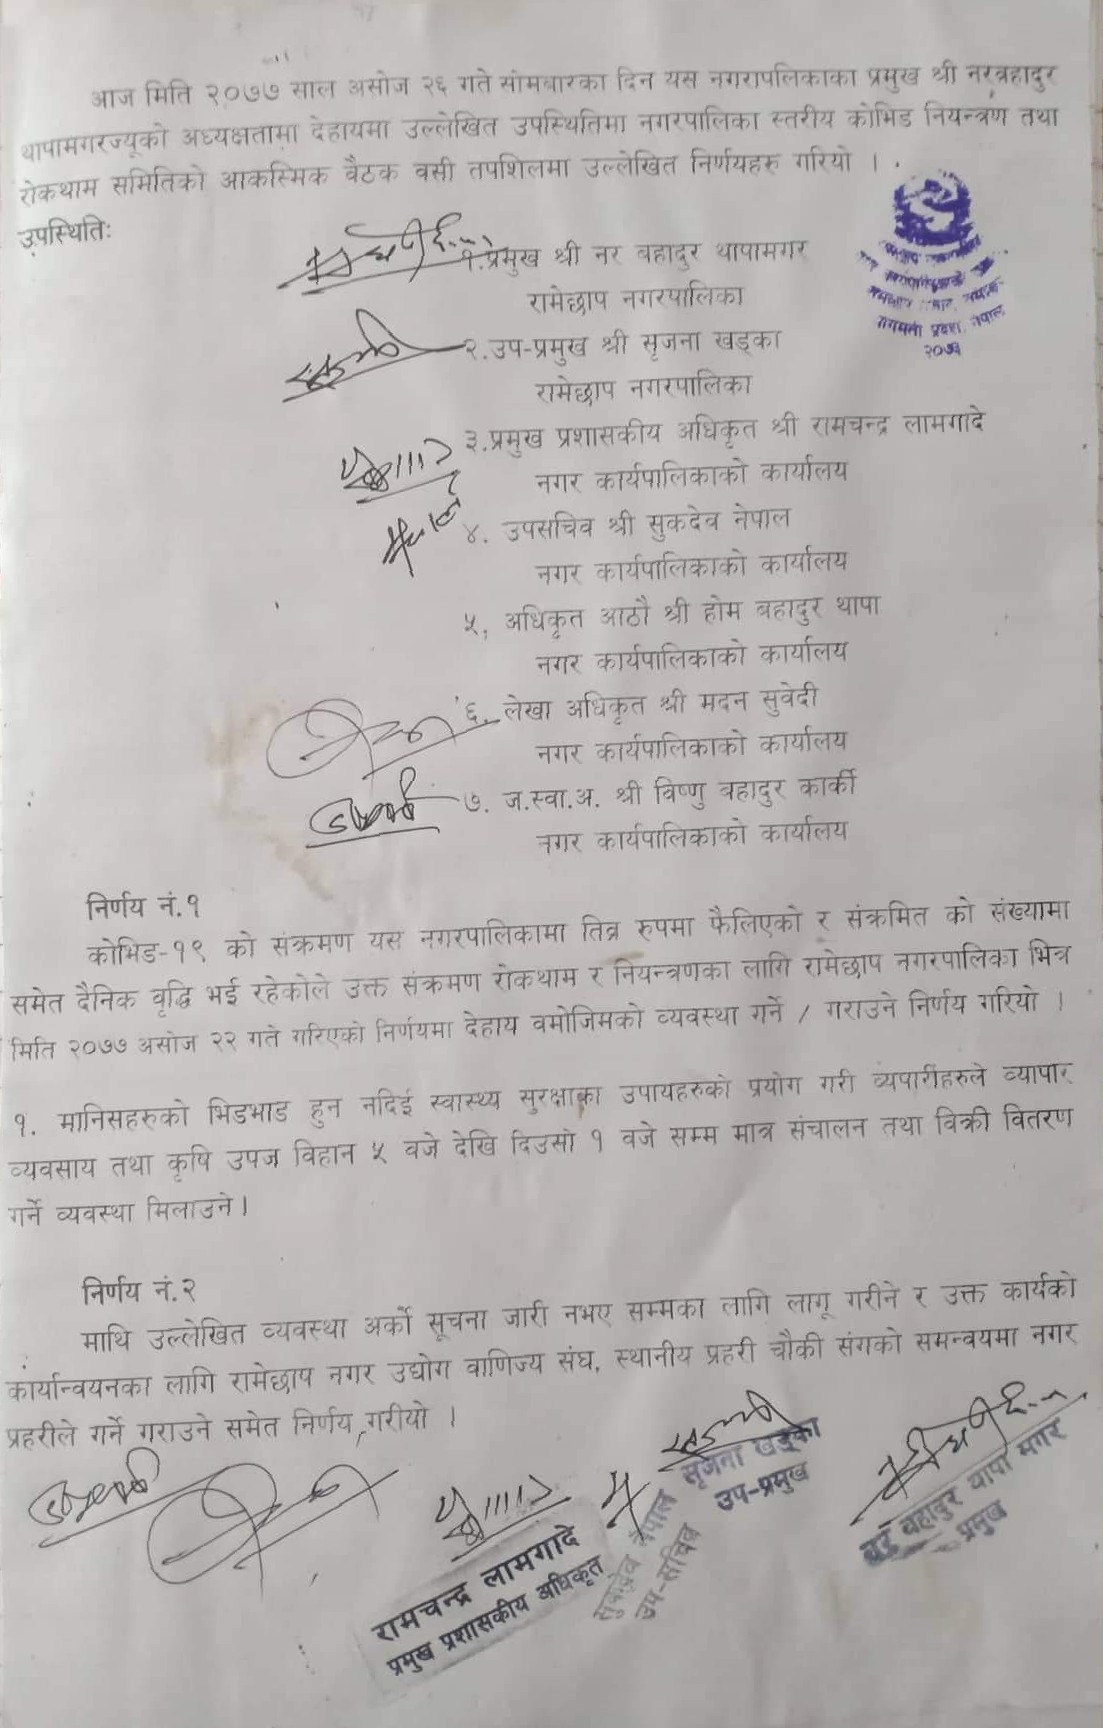 आज मिति २०७७ साल असोज २६ गते सोमबारका दिन यस नगरापलिकाका प्रमुख श्री नरबहादुर
थापामगरज्यूको अध्यक्षतामा देहायमा उल्लेखित उपस्थितिमा नगरपालिका स्तरीय कोभिड नियन्त्रण तथा
रोकथाम समितिको आकस्मिक बैठक वसी तपशिलमा उल्लेखित निर्णयहरु गरियो ।
उपस्थितिः
१.प्रमुख श्री नर बहादुर थापामगर
रामेछाप नगरपालिका
२.उप-प्रमुख श्री सृजना खड्का
रामेछाप नगरपालिका
३.प्रमुख प्रशासकीय अधिकृत श्री रामचन्द्र लामगादे
नगर कार्यपालिकाको कार्यालय
४. उपसचिव श्री सुकदेव नेपाल
नगर कार्यपालिकाको कार्यालय
५, अधिकृत आठौ श्री होम बहादुर थापा
नगर कार्यपालिकाको कार्यालय
६. लेखा अधिकृत श्री मदन सुवेदी
नगर कार्यपालिकाको कार्यालय
७. ज.स्वा.अ. श्री विष्णु बहादुर कार्की
नगर कार्यपालिकाको कार्यालय
प्रदेश, नेपाल
२०७३
निर्णय नं.१
कोभिड-१९ को संक्रमण यस नगरपालिकामा तिव्र रुपमा फैलिएको र संक्रमित को संख्यामा
समेत दैनिक वृद्धि भई रहेकोले उक्त संक्रमण रोकथाम र नियन्त्रणका लागि रामेछाप नगरपालिका भित्र
मिति २०७७ असोज २२ गते गरिएको निर्णयमा देहाय वमोजिमको व्यवस्था गर्ने / गराउने निर्णय गरियो ।
१. मानिसहरुको भिडभाड हुन नदिई स्वास्थ्य सुरक्षाका उपायहरुको प्रयोग गरी व्यपारीहरुले व्यापार
व्यवसाय तथा कृषि उपज विहान ५ वजे देखि दिउसो १ वजे सम्म मात्र संचालन तथा विक्री वितरण
गर्ने व्यवस्था मिलाउने।
निर्णय नं.२
माथि उल्लेखित व्यवस्था अर्को सूचना जारी नभए सम्मका लागि लागू गरीने र उक्त कार्यको
कार्यान्वयनका लागि रामेछाप नगर उद्योग वाणिज्य संघ, स्थानीय प्रहरी चौकी संगको समन्वयमा नगर
प्रहरीले गर्ने गराउने समेत निर्णय गरीयो ।
रामचन्द्र लामगादे
प्रमुख प्रशासकीय अधिकृत
सुकदेव नेपाल
उप-सचिव
सृजना खड्का
उप-प्रमुख
नर बहादुर थापा मगर
प्रमुख